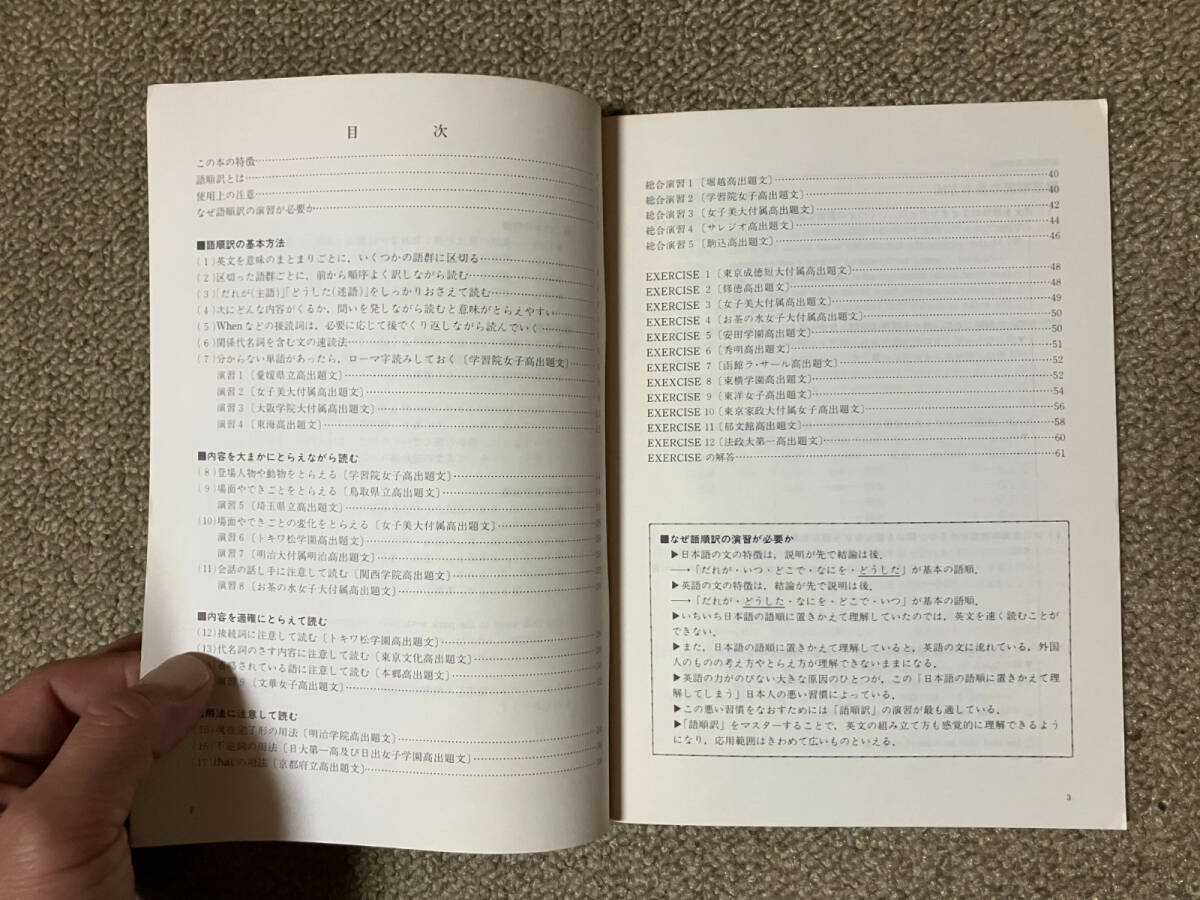 目　次
この本の特徴
語順訳とは
使用上の注意
なぜ語順訳の演習が必要か
■語順訳の基本方法
(1)英文を意味のまとまりごとに，いくつかの語群に区切る
(2)区切った語群ごとに，前から順序よく訳しながら読む
(3)「だれが(主語)」「どうした(述語)」をしっかりおさえて読む
(4)次にどんな内容がくるか，問いを発しながら読むと意味がとらえやすい
(5)Whenなどの接続詞は，必要に応じて後でくり返しながら読んでいく
(6)関係代名詞を含む文の速読法
(7)分からない単語があったら，ローマ字読みしておく〔学習院女子高出題文〕
演習1〔愛媛県立高出題文〕
演習2〔女子美大付属高出題文〕
演習3〔大阪学院大付属高出題文〕
演習4〔東海高出題文〕
■内容を大まかにとらえながら読む
(8)登場人物や動物をとらえる〔学習院女子高出題文〕
(9)場面やできごとをとらえる〔鳥取県立高出題文〕
演習5〔埼玉県立高出題文〕
(10)場面やできごとの変化をとらえる〔女子美大付属高出題文〕
演習6〔トキワ松学園高出題文〕
演習7〔明治大付属明治高出題文〕
(11)会話の話し手に注意して読む〔関西学院高出題文〕
演習8〔お茶の水女子大付属高出題文〕
■内容を適確にとらえて読む
(12)接続詞に注意して読む〔トキワ松学園高出題文〕
(13)代名詞のさす内容に注意して読む〔東京文化高出題文〕
されている語に注意して読む〔本郷高出題文〕
演習9〔文華女子高出題文〕
用法に注意して読む
(15)現在完了形の用法〔明治学院高出題文〕
(16)不定詞の用法〔日大第一高及び日出女子学園高出題文〕
(17)thatの用法〔京都府立高出題文〕
2
総合演習1〔堀越高出題文〕 40
総合演習2〔学習院女子高出題文〕 40
総合演習3〔女子美大付属高出題文〕 42
総合演習4〔サレジオ高出題文〕 44
総合演習5〔駒込高出題文〕 46
EXERCISE 1〔東京成徳短大付属高出題文〕 48
EXERCISE 2〔修徳高出題文〕 48
EXERCISE 3〔女子美大付属高出題文〕 49
EXERCISE 4〔お茶の水女子大付属高出題文〕 50
EXERCISE 5〔安田学園高出題文〕 50
EXERCISE 6〔秀明高出題文〕 51
EXERCISE 7〔函館ラ・サール高出題文〕 52
EXEXCISE 8〔東横学園高出題文〕 52
EXERCISE 9〔東洋女子高出題文〕 54
EXERCISE 10〔東京家政大付属女子高出題文〕 56
EXERCISE 11〔郁文館高出題文〕 58
EXERCISE 12〔法政大第一高出題文〕 60
EXERCISE の解答 61
■なぜ語順訳の演習が必要か
▶日本語の文の特徴は，説明が先で結論は後．
→「だれが・いつ・どこで・なにを・どうした」が基本の語順．
▶英語の文の特徴は，結論が先で説明は後．
→「だれが・どうした・なにを・どこで・いつ」が基本の語順．
▶いちいち日本語の語順に置きかえて理解していたのでは，英文を速く読むことが
できない．
▶また，日本語の語順に置きかえて理解していると，英語の文に流れている，外国
人のものの考え方やとらえ方が理解できないままになる．
▶英語の力がのびない大きな原因のひとつが，この「日本語の語順に置きかえて理
解してしまう」日本人の悪い習慣によっている．
▶この悪い習慣をなおすためには「語順訳」の演習が最も適している．
▶「語順訳」をマスターすることで，英文の組み立て方も感覚的に理解できるよう
になり，応用範囲はきわめて広いものといえる．
3